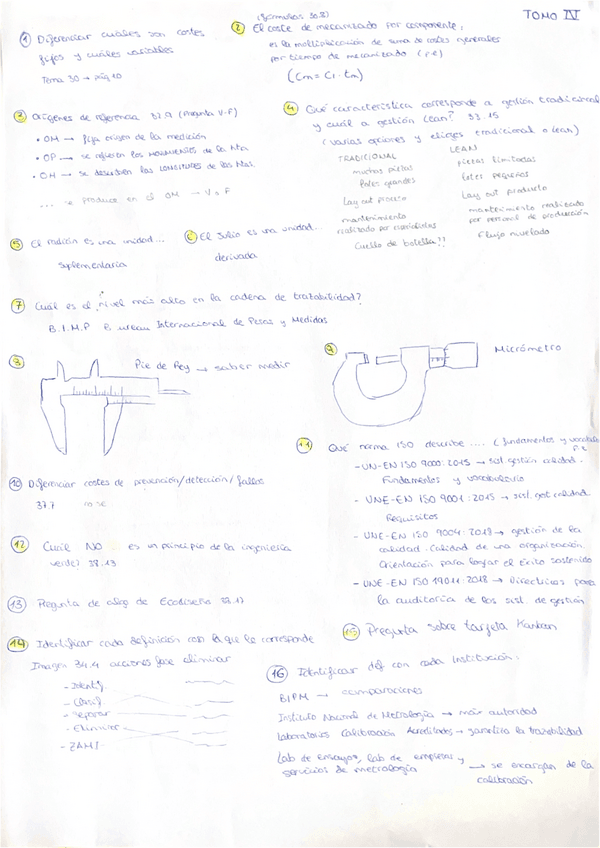 TOMO IV
① Diferenciar cuáles son costes
fijos y cuáles variables
Tema 30 → pág 10
(fórmulas 30.8)
② El coste de mecanizado por componente:
es la multiplicación de suma de costes generales
por tiempo de mecanizado
(Cm = C1 · tm)
③ Orígenes de referencia 32.9 (Pregunta V-F)
• OM → fija origen de la medición
• OP → se refieren los MOVIMIENTOS de la
• OH → se describen las LONGITUDES de las
... se produce en el OM → V o F
④ Qué característica corresponde a gestión tradicional
y cuál a gestión lean? 33.15
(varias opciones y eliges tradicional o lean)
TRADICIONAL
muchas piezas
lotes grandes
Lay out proceso
mantenimiento
realizado por especialistas
Cuello de botella!!
LEAN
piezas limitadas
lotes pequeños
Lay out producto
mantenimiento realizado
por personal de producción
Flujo nivelado
⑤ El radián es una unidad...
suplementaria
⑥ El Julio es una unidad...
derivada
⑦ Cuál es el nivel más alto en la cadena de trazabilidad?
B.I.M.P Bureau Internacional de Pesas y Medidas
⑧ Pie de Rey → saber medir
⑨ Micrómetro
⑩ Diferenciar costes de prevención/detección/fallos
37.7 no se
⑪ Qué norma ISO describe .... (fundamentos y vocabulario
- UN-EN ISO 9000:2015 → sist gestión calidad.
Fundamentos y vocabulario
- UNE-EN ISO 9001:2015 → sist. gst calidad.
Requisitos
- UNE-EN ISO 9004:2018 → gestión de la
calidad. Calidad de una organización.
Orientación para lograr el éxito sostenido
- UNE-EN ISO 19011:2018 → Directrices para
la auditoría de los sist. de gestión
⑫ Cuál NO es un principio de la ingeniería
verde? 38.13
⑬ Pregunta de algo de Ecodiseño 38.17
⑭ Identificar cada definición con la que le corresponde
Imagen 34.4 acciones fase eliminar
- Identif.
- Clasif.
- Separar
- Eliminar
⑮ Pregunta sobre tarjeta Kanban
⑯ Identificar def con cada Institución:
BIPM → comparaciones
Instituto Nacional de Metrología → máx autoridad
Laboratorios Calibración Acreditados → garantiza la trazabilidad
Lab de ensayos, lab de empresas y
servicios de metrología → se encargan de la
calibración